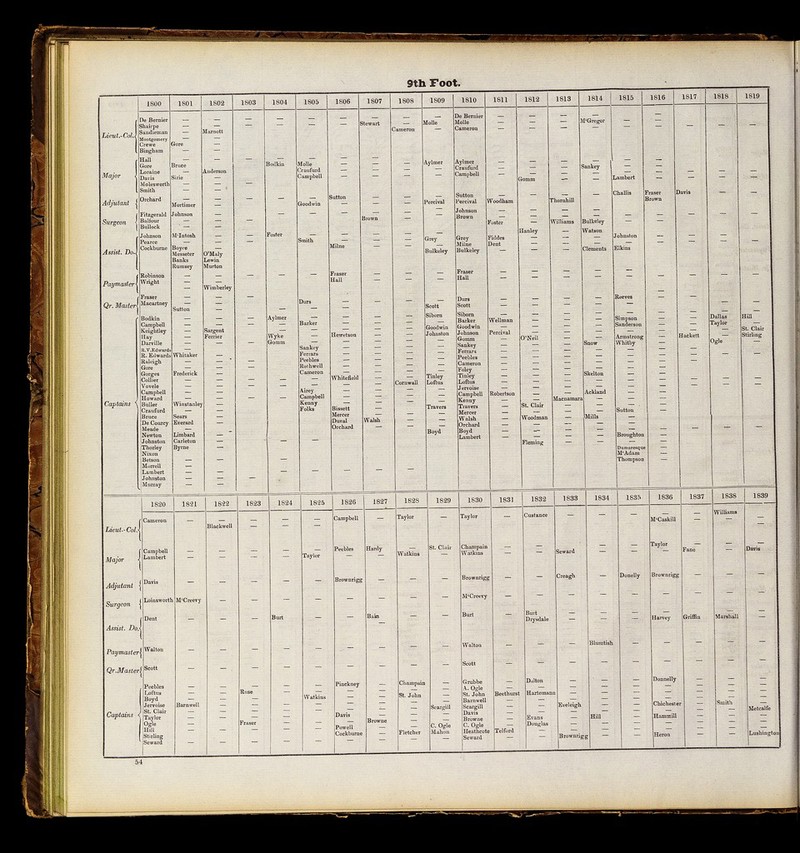 9th Foot.
1800 1801 1802 1803 1804 1805 1806 1807 1808 1809 1810 1811 1812 1813 1814 1815 1816 1817 1818 1819
Lieut.-Col.
De Bernier — De Bernier
Shairpe — Stewart — Molle Molle — M'Gregor
Sandieman — Marnott — Cameron — Cameron
Montgomery
Crewe Gore
Bingham
Major
Hall — Bodkin Molle — Aylmer Aylmer
Gore Bruce — Craufurd — Craufurd — Sankey
Loraine — Anderson — Campbell — Campbell
Davis Sirie — Gomm — Lambert
Molesworth
Smith
Adjutant
Orchard — Sutton — Sutton — Challis Fraser Davis
Mortimer — Goodwin — Percival Percival Woodham — Thornhill — Brown
Surgeon
Fitzgerald Johnson — Johnson
Balfour — Brown — Brown — Williams Bulkeley
Bullock — Foster
Assist. Do.
Johnson M'Intosh — Foster — Hanley — Watson
Pearce — Smith — Grey Grey Fiddes — Johnston
Cockburne Boyce — Milne — Milne Dent
Messeter O'Maly — Bulkeley Bulkeley — Clements Elkins
Banks Lewin
Rumsey Morton
Paymaster
Robinson — Fraser — Fraser
Wright — Hall — Hall
Wimberley
Qr. Master
Fraser — Dors — Dors — Reeves
Macartney — Scott Scott
Sutton
Captains
Bodkin — Aylmer — Siborn Siborn — Simpson — Dallas Hill
Campbell — Barker — Barker Wellman — Sanderson — Taylor
Knightley — Sargent — Goodwin Goodwin — St. Clair
Hay — Ferrier — Wyke — Hewetson — Johnston Johnson Percival — Armstrong — Hackett — Stirling
Darville — Gomm — Gomm — O'Neil — Snow Whitby — Ogle
S.V. Edwards — Sankey — Sankey
R. Edwards Whitaker — Ferrars — Ferrars
Raleigh — Peebles — Peebles
Gore — Rothwell — Cameron
Gorges Frederick — Cameron — Foley — Skelton
Collier — Whitefield — Tinley Tinley
Vovele — Cornwall Loftus Loftus
Campbell — Airey — Jervoise
Haward — Campbell — Campbell Robertson — Ackland
Buller Winstanley — Kenny — Kenny — Macnamara
Craufurd — Folks Bissett — Travers Travers — St. Clair
Bruce Sears — Mercer — Mercer — Sutton
De Courcy Everard — Duval Walsh — Walsh — Woodman — Mills
Meade — Orchard — Orchard
Newton Limbard — Boyd Boyd — Broughton
Johnston Carleton — Lambert — Fleming
Thorley Byrne — Dumaresque
Nixon — M'Adam
Betson — Thompson
Morrell
Lambert
Johnston
Murray
1820 1821 1822 1823 1824 1825 1826 1827 1828 1829 1830 1831 1832 1833 1834 1835 1836 1837 1838 1839
Lieut.-Col.
Cameron — Campbell — Taylor — Taylor — Custance — Williams
Blackwell — M'Caskill
Major
Campbell — Peebles Hardy — St. Clair Champain — Taylor
Lambert — Taylor — Watkins — Watkins — Seward — Fane — Davis
Adjutant
Davis — Brownrigg — Brownrigg — Creagh — Donelly Brownrigg
Surgeon
Loinsworth M'Creevy — M'Creevy
Assist. Do.
Dent — Burt — Bain — Burt — Burt — Harvey Griffin Marshall
Drysdale
Paymaster
Walton — Walton — Blumtish
Qr. Master
Scott — Scott
Captains
Peebles — Pinckney — Champain — Grubbe — Dalton — Donnelly
Loftus — Rose — A. Ogle
Boyd — Watkins — St. John — St. John Beethurst Hartsmann
Jervoise Barnwell — Barnwell
St. Clair — Scargill Scargill — Eveleigh — Chichester — Smith
Taylor — Davis — Davis — Metcalfe
Ogle — Fraser — Browne — Browne — Evans — Hill — Hammill
Hill — Powell — C. Ogle C. Ogle — Douglas
Stirling — Cockburne — Fletcher Mahon Heathcote Telford — Heron — Lushington
Seward — Seward — Brownrigg
54